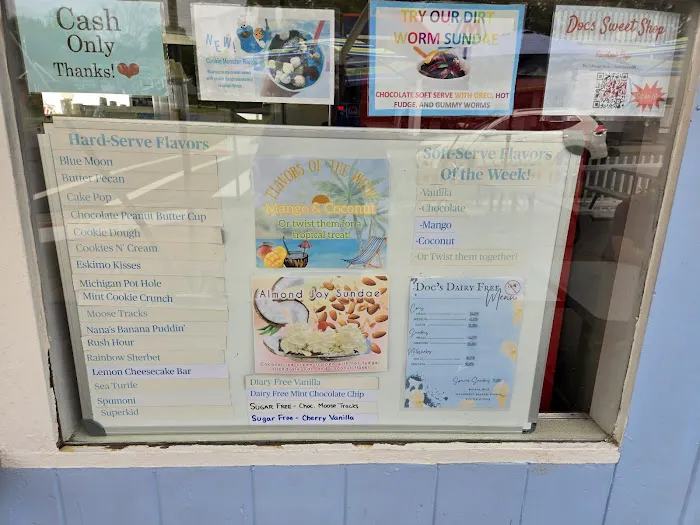 Cash
Only
Thanks!
NEW!
TRY OUR DIRT
WORM SUNDAE
CHOCOLATE SOFT SERVE WITH OREO, HOT
FUDGE, AND GUMMY WORMS
Doc's Sweet Shop
Hard-Serve Flavors
Blue Moon
Butter Pecan
Cake Pop
Chocolate Peanut Butter Cup
Cookie Dough
Cookies N' Cream
Eskimo Kisses
Michigan Pot Hole
Mint Cookie Crunch
Moose Tracks
Nana's Banana Puddin'
Rush Hour
Rainbow Sherbet
Lemon Cheesecake Bar
Sea Turtle
Spumoni
Superkid
FLAVORS OF THE WEEK
Mango & Coconut
Or twist them for a
tropical treat!
Almond Joy Sundae
Diary Free Vanilla
Dairy Free Mint Chocolate Chip
SUGAR FREE - CHOC. MOOSE TRACKS
Sugar Free - Cherry Vanilla
Soft-Serve Flavors
Of the Week!
-Vanilla
-Chocolate
-Mango
-Coconut
-Or Twist them together!
Doc's Dairy Free
Menu